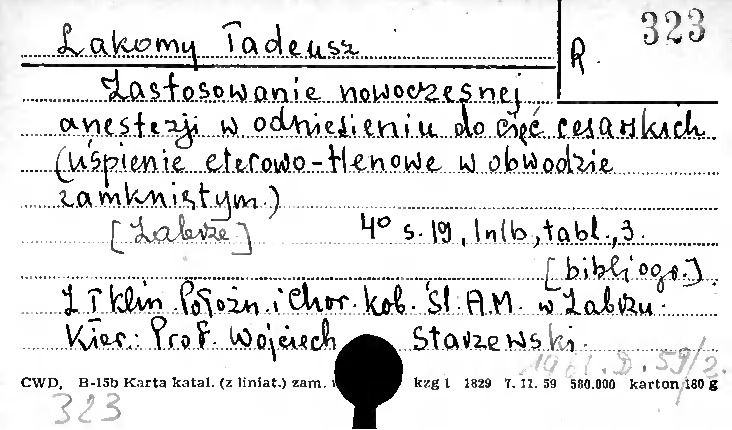 Łakomy Tadeusz
R. 323
Zastosowanie nowoczesnej
anestezji w odniesieniu do cięć cesarskich
(uśpienie eterowo-tlenowe w obwodzie
zamkniętym.)
[Zabrze] 4° s. 19, 1nlb, tabl., 3.
[bibliogr.].
Z I Klin. Położn. i Chor. kob. Śl. A.M. w Zabrzu.
Kier.: Prof. Wojciech Starzewski.
1961. D. 59/2.
CWD, B-15b Karta katal. (z liniat.) zam. kzg 1 1829 7. 11. 59 580.000 karton 180 g
323